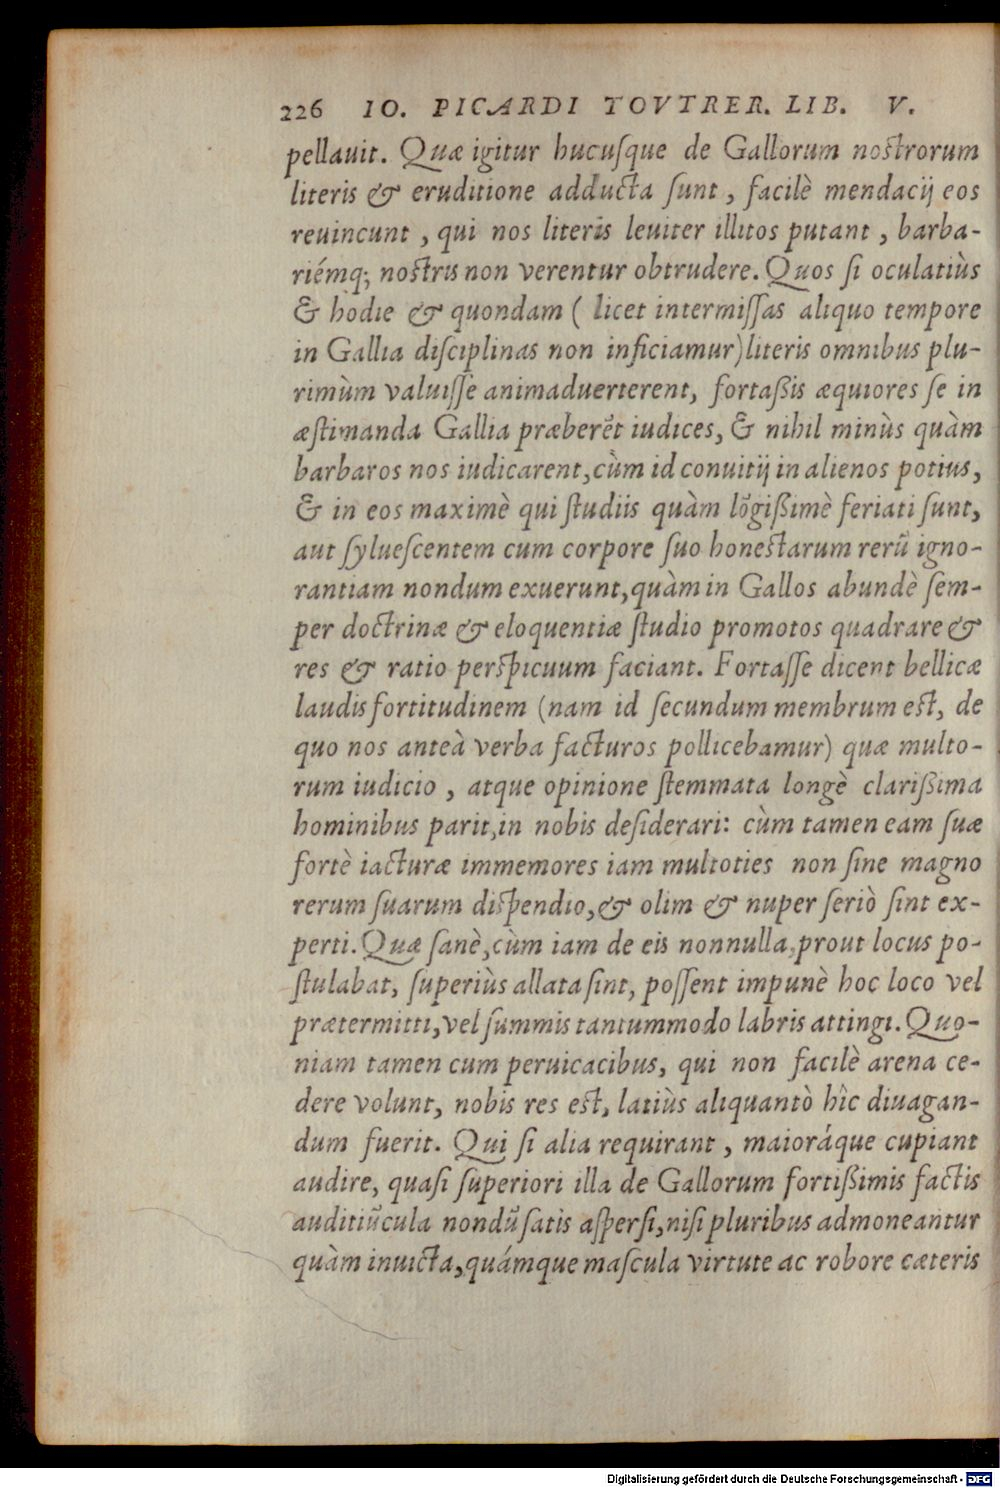 226 IO. PICARDI TOVTRER. LIB. V.
pellauit. Quæ igitur hucuſque de Gallorum noſtrorum
literis & eruditione adducta ſunt, facilè mendacij eos
reuincunt, qui nos literis leuiter illitos putant, barba-
riémq; noſtris non verentur obtrudere. Quos ſi oculatiùs
& hodie & quondam ( licet intermiſſas aliquo tempore
in Gallia diſciplinas non inficiamur) literis omnibus plu-
rimùm valuiſſe animaduerterent, fortaßis æquiores ſe in
æſtimanda Gallia præberẽt iudices, & nihil minùs quàm
barbaros nos iudicarent, cùm id conuitij in alienos potius,
& in eos maximè qui ſtudiis quàm lõgißimè feriati ſunt,
aut ſylueſcentem cum corpore ſuo honeſtarum rerũ igno-
rantiam nondum exuerunt, quàm in Gallos abundè ſem-
per doctrinæ & eloquentiæ ſtudio promotos quadrare &
res & ratio perſpicuum faciant. Fortaſſe dicent bellicæ
laudis fortitudinem (nam id ſecundum membrum eſt, de
quo nos anteà verba facturos pollicebamur) quæ multo-
rum iudicio, atque opinione ſtemmata longè clarißima
hominibus parit, in nobis deſiderari: cùm tamen eam ſuæ
fortè iacturæ immemores iam multoties non ſine magno
rerum ſuarum diſpendio, & olim & nuper ſeriò ſint ex-
perti. Quæ ſanè, cùm iam de eis nonnulla, prout locus po-
ſtulabat, ſuperiùs allata ſint, poſſent impunè hoc loco vel
prætermitti, vel ſummis tantummodo labris attingi. Quo-
niam tamen cum peruicacibus, qui non facilè arena ce-
dere volunt, nobis res eſt, latiùs aliquantò hîc diuagan-
dum fuerit. Qui ſi alia requirant, maioráque cupiant
audire, quaſi ſuperiori illa de Gallorum fortißimis factis
auditiũcula nondũ ſatis aſperſi, niſi pluribus admoneantur
quàm inuicta, quámque maſcula virtute ac robore cæteris
Digitalisierung gefördert durch die Deutsche Forschungsgemeinschaft - DFG